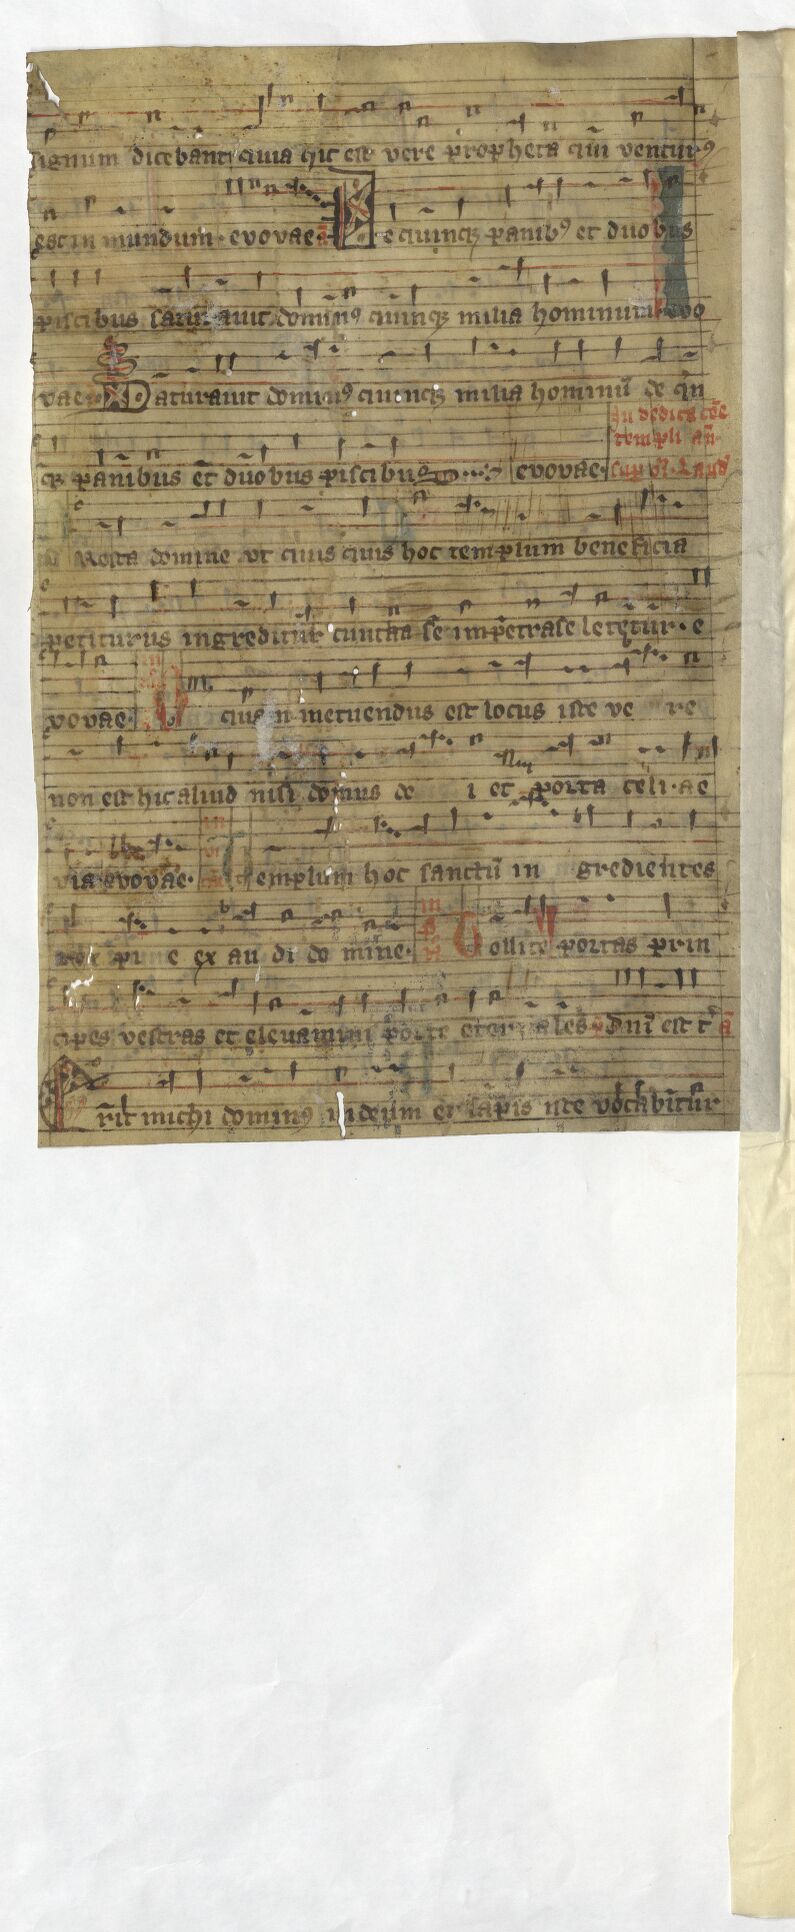 signum dicebant quia hic est vere propheta qui venturꝰ
est in mundum · evovae · a͞ De quinqꝫ panibꝰ et duobus
piscibus saturauit dominꝰ quinqꝫ milia hominum evo
vae · Saturauit dominꝰ quinqꝫ milia hominū de quin
qꝫ panibus et duobus piscibus evovae ·
In dedicā
templi an̄
sup
domine ut quis quis hoc templum beneficia
petiturus ingreditur cuncta se impetrasse letetur · e
vovae · quam metuendus est locus iste ve re
non est hic aliud nisi domus de i et porta celi · ae
via · evovae · Templum hoc sanctū in gredientes
ex au di do mine · Tollite portas prin
cipes vestras et elevamini porte eternales
Erit michi dominꝰ in deum et lapis iste vocabitur